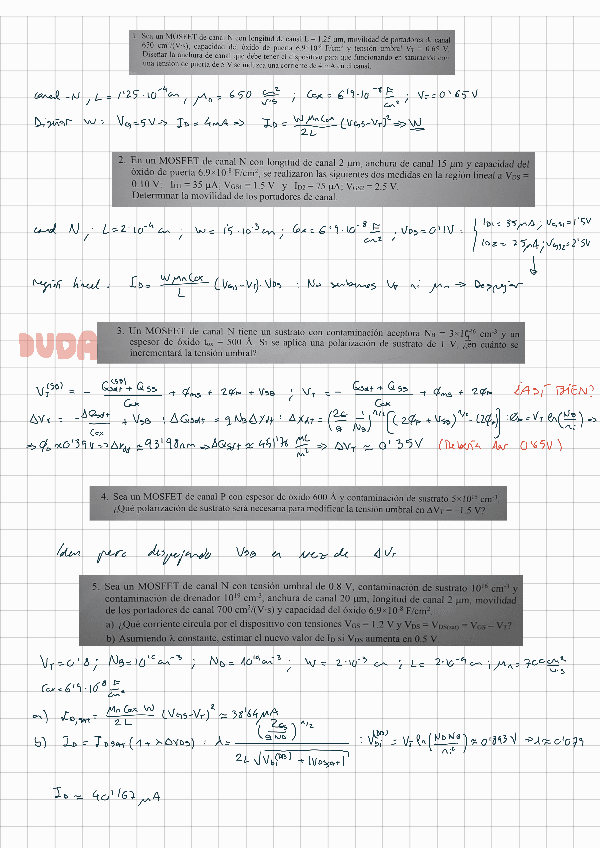 1. Sea un MOSFET de canal N con longitud de canal L = 1.25 µm, movilidad de portadores de canal
650 cm²/(V·s), capacidad del óxido de puerta 6.9×10⁻⁸ F/cm² y tensión umbral V_T = 0.65 V.
Diseñar la anchura de canal que debe tener el dispositivo para que funcionando en saturación con
una tensión de puerta de 5 V se induzca una corriente de 4 mA en el canal.
canal-N, L = 1'25·10⁻⁴ cm, μn = 650 cm²/V·s ; Cox = 6'9·10⁻⁸ F/cm² ; VT = 0'65V
Diseñar W: VG = 5V ⇒ ID = 4mA ⇒ ID = WμnCox/2L (VGS-VT)² ⇒ W
2. En un MOSFET de canal N con longitud de canal 2 µm, anchura de canal 15 µm y capacidad del
óxido de puerta 6.9×10⁻⁸ F/cm², se realizaron las siguientes dos medidas en la región lineal a V_DS =
0.10 V: I_D1 = 35 µA, V_GS1 = 1.5 V y I_D2 = 75 µA, V_GS2 = 2.5 V.
Determinar la movilidad de los portadores de canal.
canal N, : L = 2·10⁻⁴ cm ; W = 15·10⁻³ cm ; Cox = 6'9·10⁻⁸ F/cm² ; VDS = 0'1V = { ID1 = 35µA ; VGS1 = 1'5V
ID2 = 75µA ; VGS2 = 2'5V
región lineal. ID = WμnCox/L (VGS-VT)·VDS : No sabemos VT ni μn → Despejar
DUDA
3. Un MOSFET de canal N tiene un sustrato con contaminación aceptora N_B = 3×10¹⁶ cm⁻³ y un
espesor de óxido t_ox = 500 Å. Si se aplica una polarización de sustrato de 1 V, ¿en cuánto se
incrementará la tensión umbral?
VT^(SB) = - (Qsdt^(SB) + QSS)/Cox + ϕms + 2ϕF + VSB ; VT = - (Qsdt + QSS)/Cox + ϕms + 2ϕF ¿ASÍ BIEN?
ΔVT = -ΔQsdt/Cox + VSB : ΔQsdt = qNBΔXdT : ΔXdT = (2ε/q 1/NB)^1/2 [(2ϕF + VSB)^1/2 - (2ϕF) : ϕF = VT ln(NB/ni) ⇒
⇒ ϕF ≈ 0'39V ⇒ ΔXdT ≈ 93'98nm ⇒ ΔQsdt ≈ 451'76 µC/m² ⇒ ΔVT ≈ 0'35V (Debería dar 0'65V)
4. Sea un MOSFET de canal P con espesor de óxido 600 Å y contaminación de sustrato 5×10¹⁵ cm⁻³.
¿Qué polarización de sustrato será necesaria para modificar la tensión umbral en ΔV_T = –1.5 V?
Idem pero despejando VSB en vez de ΔVT
5. Sea un MOSFET de canal N con tensión umbral de 0.8 V, contaminación de sustrato 10¹⁶ cm⁻³ y
contaminación de drenador 10¹⁹ cm⁻³, anchura de canal 20 µm, longitud de canal 2 µm, movilidad
de los portadores de canal 700 cm²/(V·s) y capacidad del óxido 6.9×10⁻⁸ F/cm².
a) ¿Qué corriente circula por el dispositivo con tensiones V_GS = 1.2 V y V_DS = V_DS(sat) = V_GS – V_T?
b) Asumiendo λ constante, estimar el nuevo valor de I_D si V_DS aumenta en 0.5 V.
VT = 0'8 ; NB = 10¹⁶ cm⁻³ ; ND = 10¹⁹ cm⁻³ ; W = 2·10⁻³ cm ; L = 2·10⁻⁴ cm ; μn = 700 cm²/V·s
Cox = 6'9·10⁻⁸ F/cm²
a) ID,sat = μnCoxW/2L (VGS-VT)² ≈ 38'64µA
b) ID = IDsat(1+λΔVDS) : λ = (2εs/qNB)^1/2 / 2L√(Vbi^(DB) + |VDS,sat|) : Vbi^(DB) = VT ln(NDNB/ni²) ≈ 0'893V ⇒ λ ≈ 0'079
ID ≈ 40'167 µA